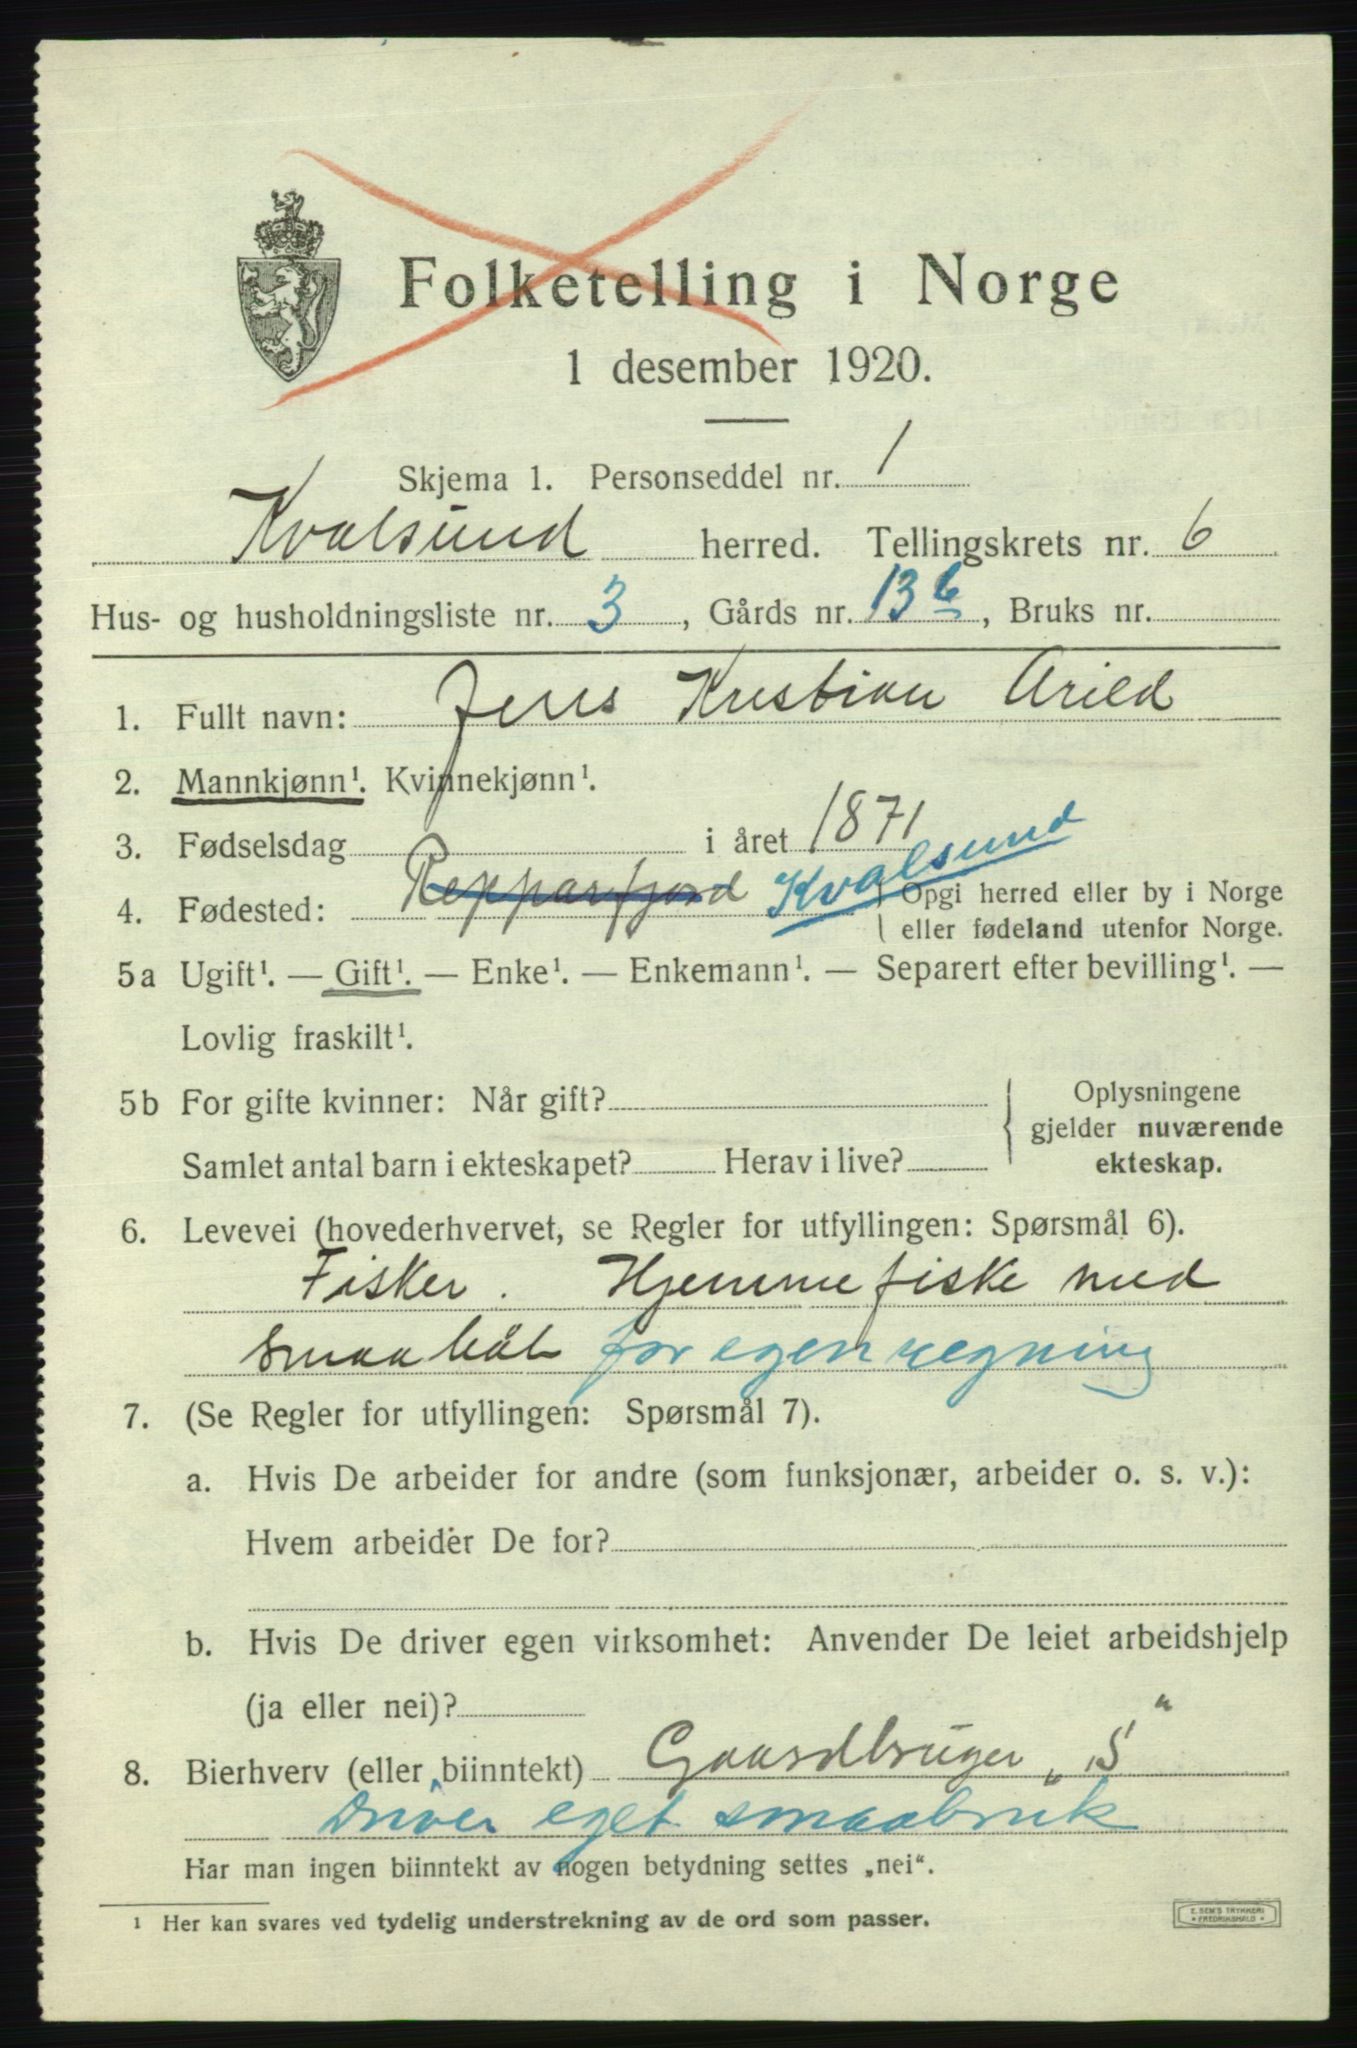 Folketelling i Norge
1 desember 1920.
Skjema 1. Personseddel nr. 1
Kvalsund herred. Tellingskrets nr. 6
Hus- og husholdningsliste nr. 3, Gårds nr. 13 6, Bruks nr.
1. Fullt navn: Jens Kristian Arild
2. Mannkjønn¹. Kvinnekjønn¹.
3. Fødselsdag i året 1871
4. Fødested: Repparfjord Kvalsund Opgi herred eller by i Norge
eller fødeland utenfor Norge.
5a Ugift¹. — Gift¹. — Enke¹. — Enkemann¹. — Separert efter bevilling¹. —
Lovlig fraskilt¹.
5b For gifte kvinner: Når gift?
Samlet antal barn i ekteskapet? Herav i live?
Oplysningene
gjelder nuværende
ekteskap.
6. Levevei (hovederhvervet, se Regler for utfyllingen: Spørsmål 6).
Fisker. Hjemmefiske med
smaabåt for egen regning
7. (Se Regler for utfyllingen: Spørsmål 7).
a. Hvis De arbeider for andre (som funksjonær, arbeider o. s. v.):
Hvem arbeider De for?
b. Hvis De driver egen virksomhet: Anvender De leiet arbeidshjelp
(ja eller nei)?
8. Bierhverv (eller biinntekt) Gaardbruger „S"
Driver eget smaabruk
Har man ingen biinntekt av nogen betydning settes „nei“.
¹ Her kan svares ved tydelig understrekning av de ord som passer.
E. SEM'S TRYKKERI
* FREDRIKSHALD *